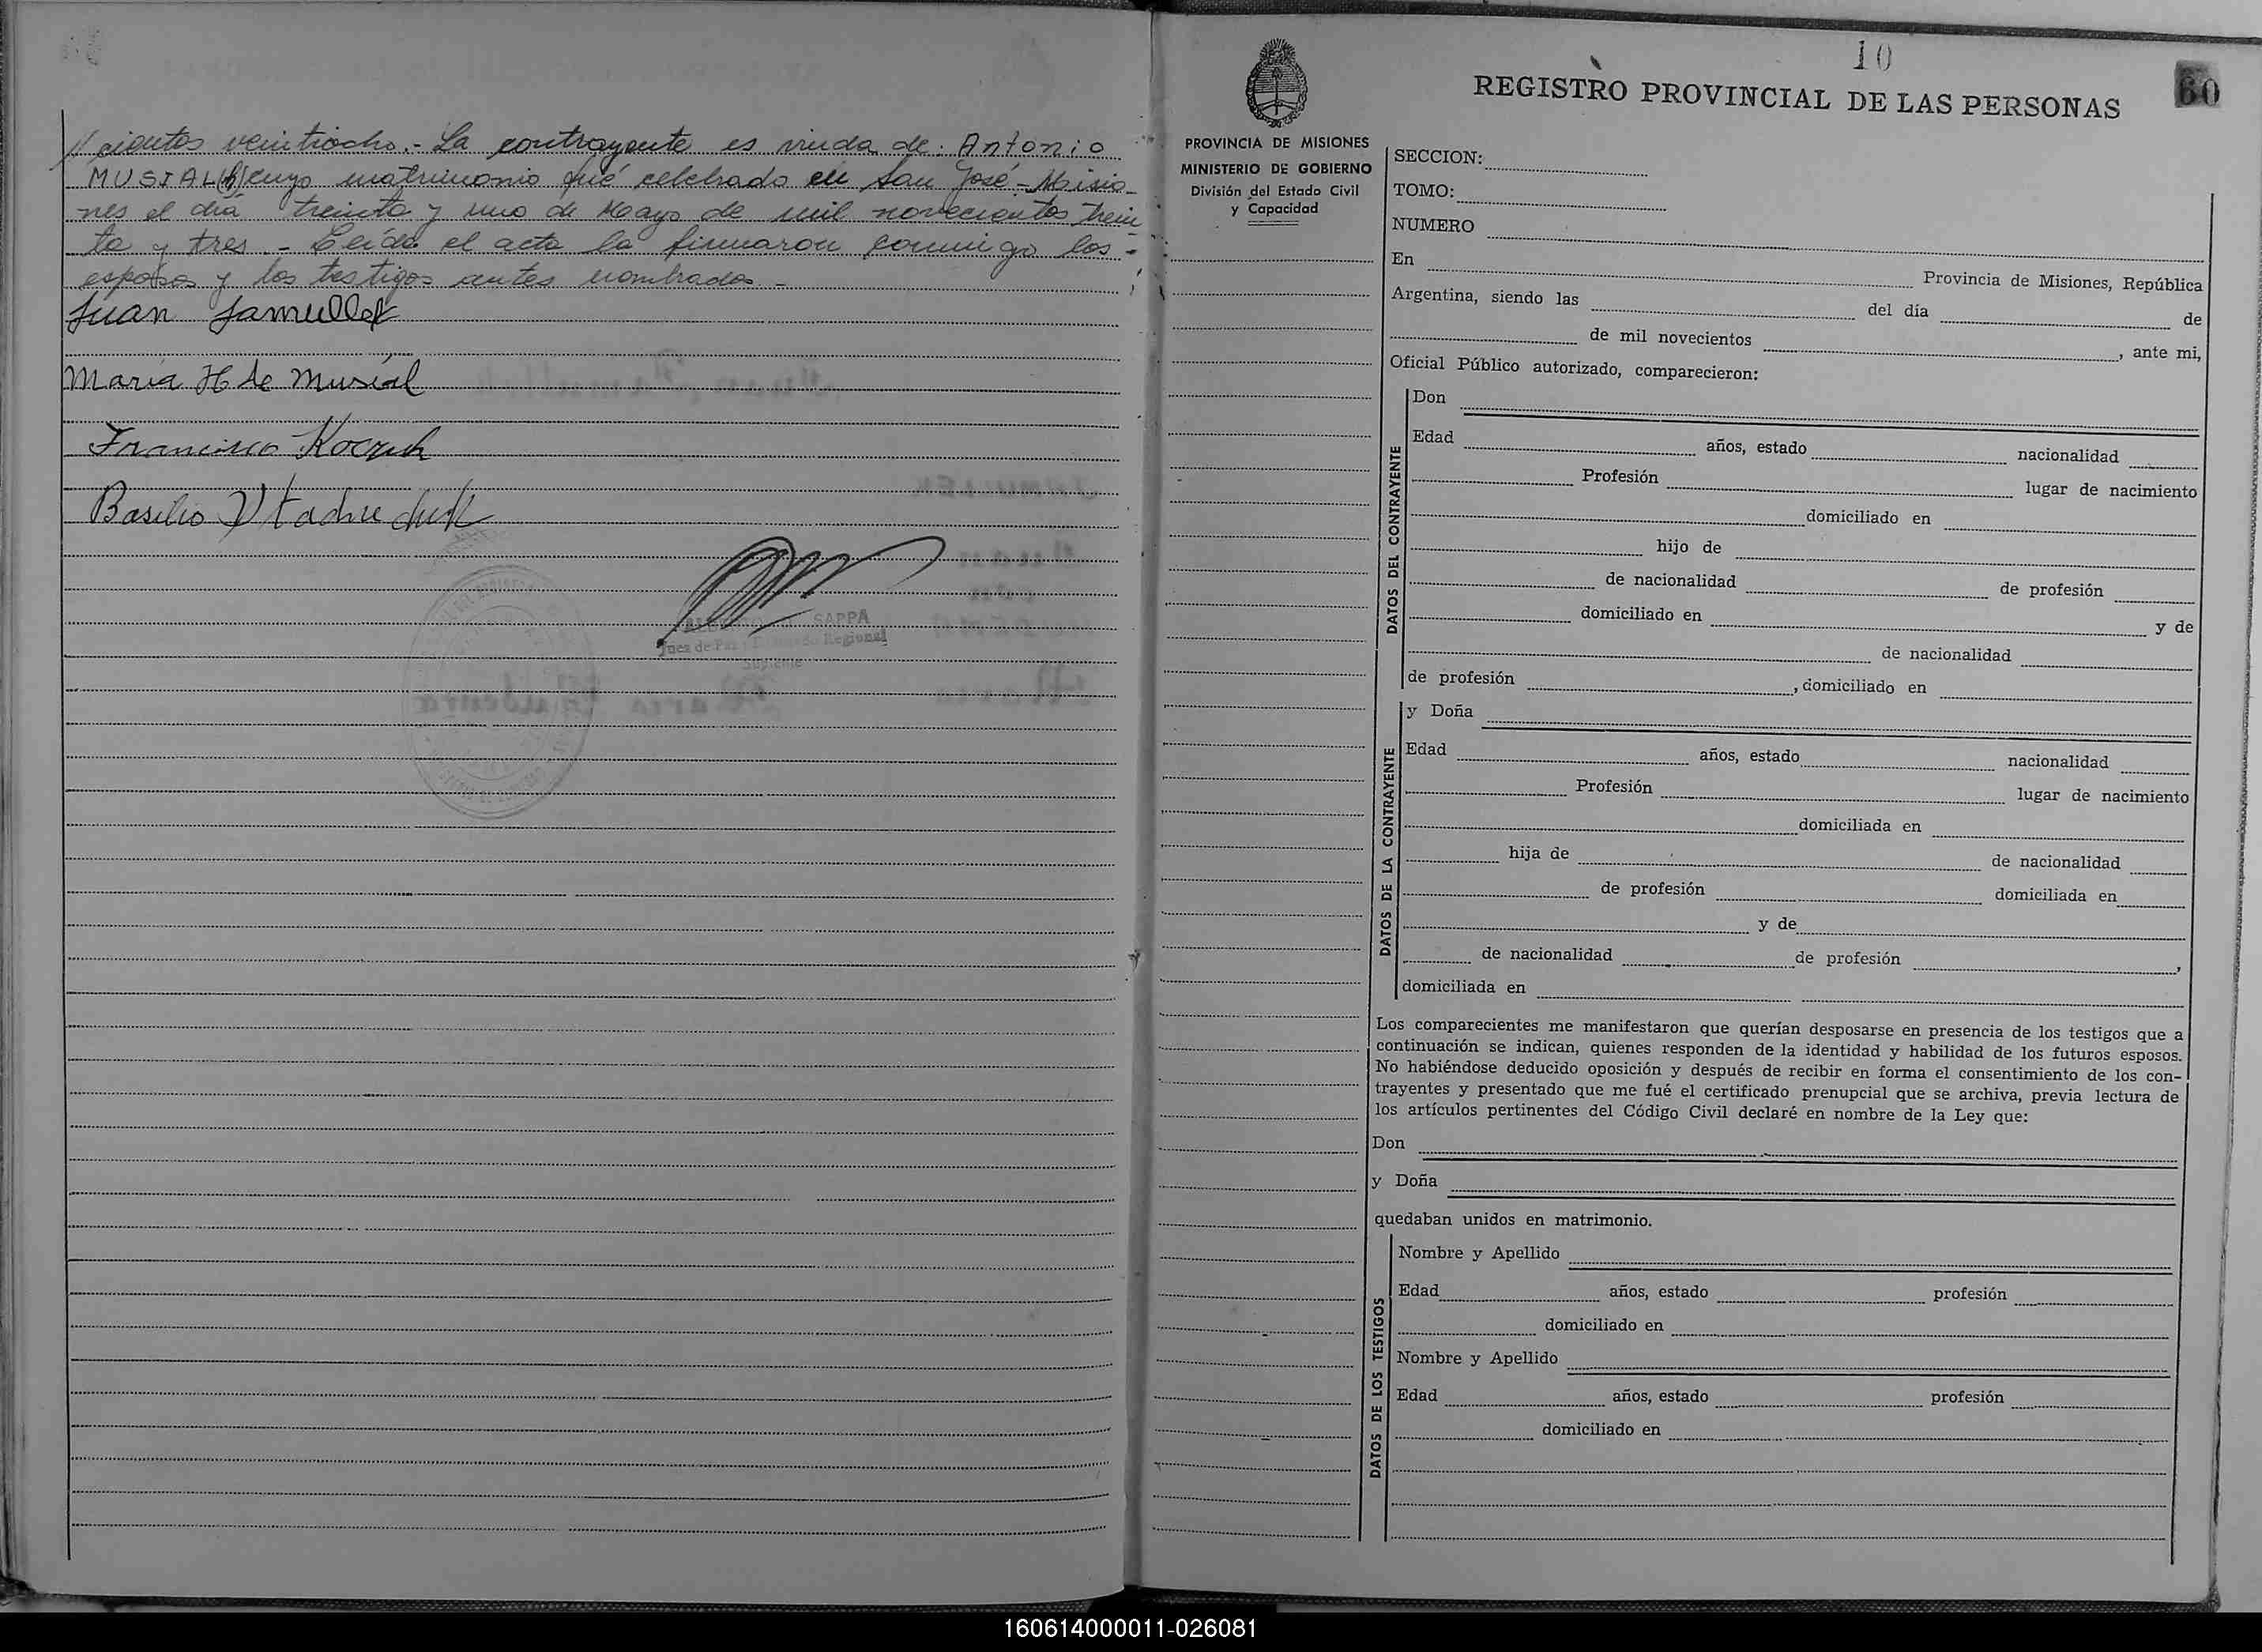 // cientos veintiocho.- La contrayente es viuda de: Antonio
MUSIAL (h) cuyo matrimonio fué celebrado en San José - Misio-
nes el día treinta y uno de Mayo de mil novecientos trein
ta y tres - Leída el acta la firmaron conmigo los -
esposos y los testigos antes nombrados -
Juan
Maria H de Musial
Francisco
Basilio
SAPPA
Juez de Paz Regional
Suplente
10
60
REGISTRO PROVINCIAL DE LAS PERSONAS
PROVINCIA DE MISIONES
MINISTERIO DE GOBIERNO
División del Estado Civil
y Capacidad
SECCION:
TOMO:
NUMERO
En Provincia de Misiones, República
Argentina, siendo las del día de
de mil novecientos , ante mi,
Oficial Público autorizado, comparecieron:
DATOS DEL CONTRAYENTE
Don
Edad años, estado nacionalidad
Profesión lugar de nacimiento
domiciliado en
hijo de
de nacionalidad de profesión
domiciliado en y de
de nacionalidad
de profesión , domiciliado en
DATOS DE LA CONTRAYENTE
y Doña
Edad años, estado nacionalidad
Profesión lugar de nacimiento
domiciliada en
hija de de nacionalidad
de profesión domiciliada en
y de
de nacionalidad de profesión ,
domiciliada en
Los comparecientes me manifestaron que querían desposarse en presencia de los testigos que a
continuación se indican, quienes responden de la identidad y habilidad de los futuros esposos.
No habiéndose deducido oposición y después de recibir en forma el consentimiento de los con-
trayentes y presentado que me fué el certificado prenupcial que se archiva, previa lectura de
los artículos pertinentes del Código Civil declaré en nombre de la Ley que:
Don
y Doña
quedaban unidos en matrimonio.
DATOS DE LOS TESTIGOS
Nombre y Apellido
Edad años, estado profesión
domiciliado en
Nombre y Apellido
Edad años, estado profesión
domiciliado en
160614000011-026081